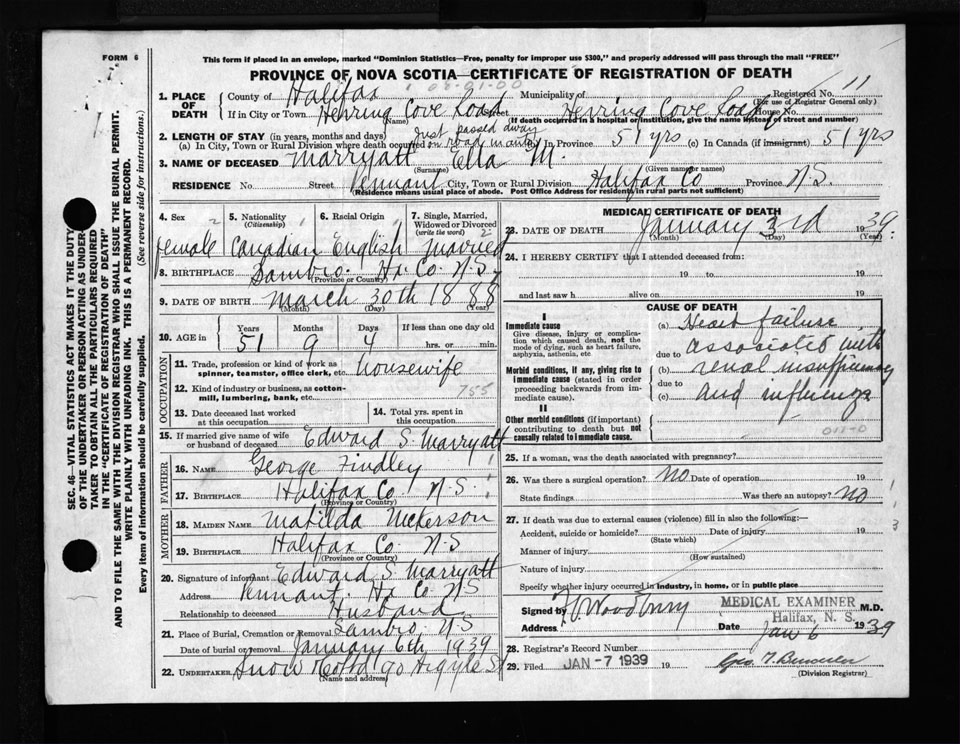 FORM 6
This form if placed in an envelope, marked "Dominion Statistics—Free, penalty for improper use $300," and properly addressed will pass through the mail "FREE"
PROVINCE OF NOVA SCOTIA—CERTIFICATE OF REGISTRATION OF DEATH
Registered No. 11
(For use of Registrar General only)
1. PLACE OF DEATH
County of Halifax Municipality of
If in City or Town Herring Cove Road Street Herring Cove Road House No.
(Name) (If death occurred in a hospital or institution, give the name instead of street and number)
2. LENGTH OF STAY (in years, months and days) just passed away
(a) In City, Town or Rural Division where death occurred on road (b) In Province 51 yrs (c) In Canada (if immigrant) 51 yrs
3. NAME OF DECEASED Marryatt Ella M.
(Surname) (Given name or names)
RESIDENCE No. Street Pennant City, Town or Rural Division Halifax Co Province N.S.
(Residence means usual place of abode. Post Office Address for residents in rural parts not sufficient)
4. Sex 5. Nationality (Citizenship) 6. Racial Origin 7. Single, Married, Widowed or Divorced (write the word)
female Canadian English Married
8. BIRTHPLACE Sambro. Hx. Co. N.S.
(Province or Country)
9. DATE OF BIRTH March 30th 1888
(Month) (Day) (Year)
10. AGE in Years Months Days If less than one day
51 9 4 hrs. or min.
OCCUPATION
11. Trade, profession or kind of work as spinner, teamster, office clerk, etc. Housewife
12. Kind of industry or business, as cotton-mill, lumbering, bank, etc. 755
13. Date deceased last worked at this occupation
14. Total yrs. spent in this occupation
15. If married give name of wife or husband of deceased Edward S. Marryatt
FATHER
16. NAME George Findley
17. BIRTHPLACE Halifax Co N.S.
(Province or Country)
MOTHER
18. MAIDEN NAME Matilda Nickerson
19. BIRTHPLACE Halifax Co N.S
(Province or Country)
20. Signature of informant Edward S. Marryatt
Address Pennant. Hx Co. N.S
Relationship to deceased Husband
21. Place of Burial, Cremation or Removal Sambro N.S
Date of burial or removal January 6th, 1939
22. UNDERTAKER Snow & Co Ltd 90 Argyle St
(Name and address)
MEDICAL CERTIFICATE OF DEATH
23. DATE OF DEATH January 3rd 1939.
(Month) (Day) (Year)
24. I HEREBY CERTIFY that I attended deceased from:
19 to 19
and last saw h alive on 19
CAUSE OF DEATH
I
Immediate cause
Give disease, injury or complication which caused death, not the mode of dying, such as heart failure, asphyxia, asthenia, etc
Morbid conditions, if any, giving rise to immediate cause (stated in order proceeding backwards from immediate cause).
II
Other morbid conditions (if important) contributing to death but not causally related to immediate cause.
(a) Heart failure
due to associated with
(b) renal insufficiency
due to
(c) and influenza
25. If a woman, was the death associated with pregnancy?
26. Was there a surgical operation? No Date of operation 19
State findings Was there an autopsy? No
27. If death was due to external causes (violence) fill in also the following:—
Accident, suicide or homicide? Date of injury 19
(State which)
Manner of injury
(How sustained)
Nature of injury
Specify whether injury occurred in industry, in home, or in public place
Signed by Woodbury MEDICAL EXAMINER M.D.
Halifax, N. S.
Address Date Jan 6 1939
28. Registrar's Record Number
29. Filed JAN -7 1939 19
(Division Registrar)
SEC. 46—VITAL STATISTICS ACT MAKES IT THE DUTY OF THE UNDERTAKER OR PERSON ACTING AS UNDERTAKER TO OBTAIN ALL THE PARTICULARS REQUIRED IN THE "CERTIFICATE OF REGISTRATION OF DEATH" AND TO FILE THE SAME WITH THE DIVISION REGISTRAR WHO SHALL ISSUE THE BURIAL PERMIT.
WRITE PLAINLY WITH UNFADING INK. THIS IS A PERMANENT RECORD.
Every item of information should be carefully supplied. (See reverse side for instructions.)